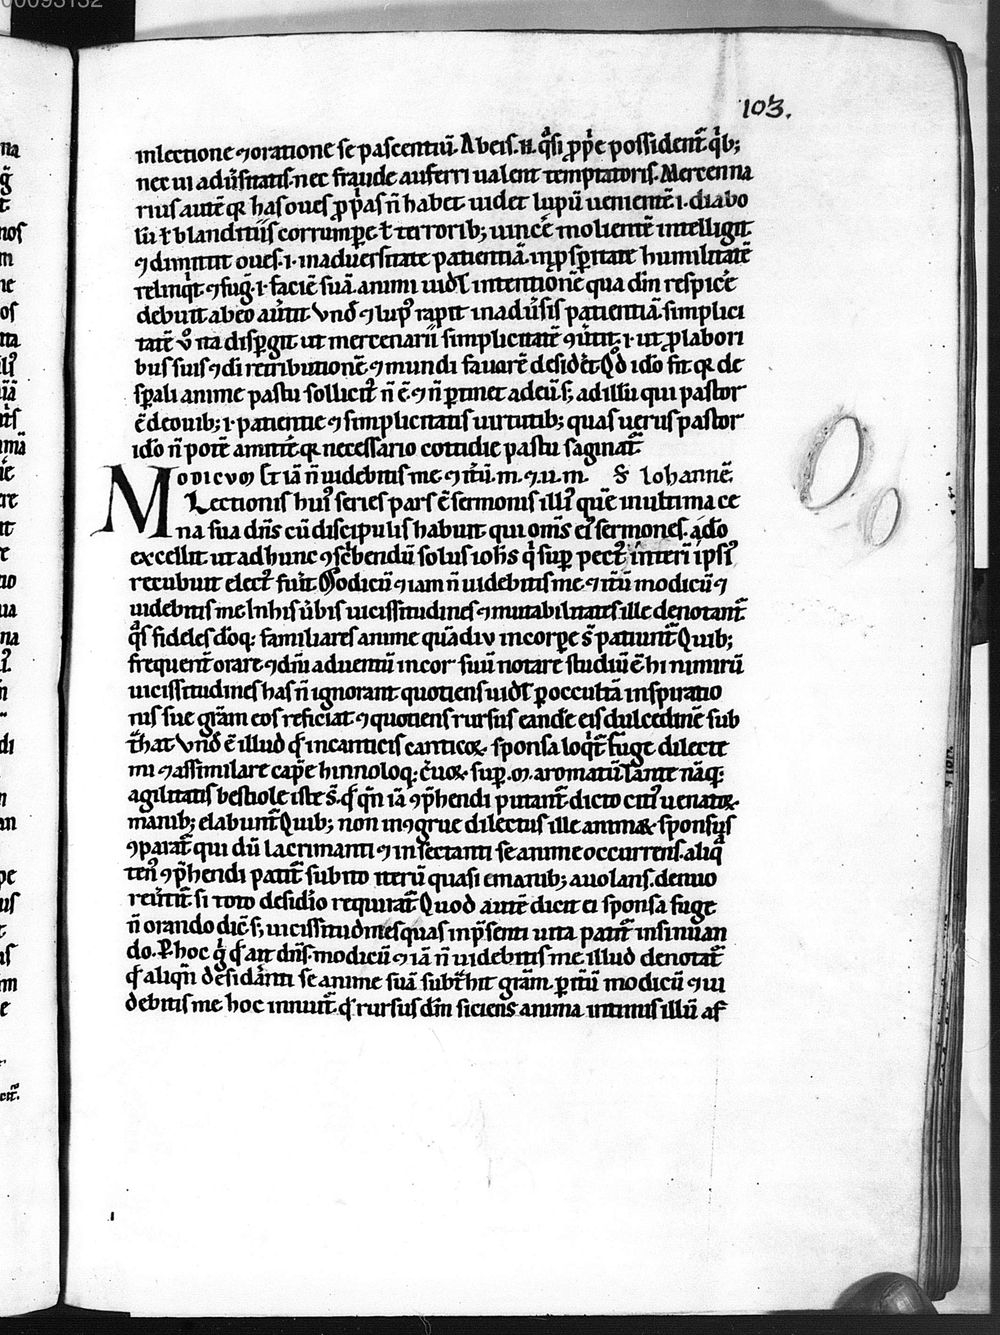 103.
inlectione ⁊oratione se pascentiū. Ab eis .n. q̄si ꝓp̄e possident̄ q̄b;
nec ui adūsitatis. nec fraude auferri ualent temptatoris. Mercenna
rius autē qꝛ has oues ꝓp̄as n̄ habet uidet lupū uenientē .i. diabo
lū ł blanditiis corrumpe ł terrorib; uincē molientē intelligit
⁊ dimittit oues .i. in aduersitate patientiā. inꝓsperitate humilitatē
relinq̄t ⁊ fuḡ .i. faciē suā animi uidł intentionē qua dm̄ respicē
debuit ab eo aūtit Vnđ ⁊ lupꝰ rapit in adūsis patientiā. simplici
tatē ū ita disꝑgit ut mercenarii simplicitatē ꝯūtit .i. ut ꝓ labori
bus suis ⁊ di retributionē ⁊ mundi fauorē desidēt Qđ ido fit qꝛ de
sp̄ali anime pastu sollicitꝰ n̄ ē ⁊ n̄ ꝑtinet ad eū s; ad illū qui pastor
ē de ouib; .i. patientie ⁊ simplicitatis uirtutib; quas uerus pastor
ido n̄ potē amittē qꝛ necessario cottidie pastu saginat̄.
Modicvm ⁊ iā n̄ uidebitis me ⁊ itū .m. ⁊ .u.m. S. Iohannē.
Lectionis huiꝰ series pars ē sermonis illiꝰ quē in ultima ce
na sua dn̄s cū discipulis habuit qui om̄s eiꝰ sermones. ađo
excellit ut ad hunc ꝯsc̄bendū solus ioh̄s q̄ suꝑ pectꝰ interī ipsiꝰ
recubuit electꝰ fuīt Modicū ⁊ iam n̄ uidebitis me ⁊ itū modicū ⁊
uidebitis me In his ūbis uicissitudines ⁊ mutabilitates ille denotant̄
q̄s fideles doq; familiares anime quādiv in corꝑe s̄ patiunt̄ Quib;
frequent̄ orare ⁊ dn̄i aduentū in cor suū notare studiū ē hi nimirū
uicissitudines has n̄ ignorant quotiens uidł ꝑ occultā inspiratio
nis sue grām eos reficiat ⁊ quotiens rursus eandē eis dulcedinē sub
t̄hat Vnđ ē illud qđ in canticis canticoꝝ sponsa loq̄t̄ fuge dilecte
mi ⁊ assimilare capē hinnoloq; c̄uoꝝ suꝑ .m. aromatū Tante nāq;
agilitatis bestiole iste s̄. qđ q̄n iā ꝯp̄hendi putant̄ dicto citiꝰ uenatoꝝ
manib; elabunt̄ Quib; non incongrue dilectus ille anima⁊ sponsus
ꝯparat̄ qui dū lacrimanti ⁊ insectanti se anime occurrens. aliq̄
tenꝰ ꝯp̄hendi patit̄ subito iterū quasi e manib; auolans. denuo
reūtit̄ si toto desidio requirat̄ Quod autē dicit ei sponsa fuge
n̄ orando dic̄ s; uicissitudines quas in p̄senti uita patit̄ insinuan
do. P hoc g̊ qđ ait dn̄s. modicū ⁊ iā n̄ uidebitis me. illud denotat̄
qđ aliqn̄ desidanti se anime suā subt̄hit grām. ꝑ itū modicū ⁊ ui
debitis me hoc innuit̄ qđ rursus dm̄ siciens anima intimis illū af